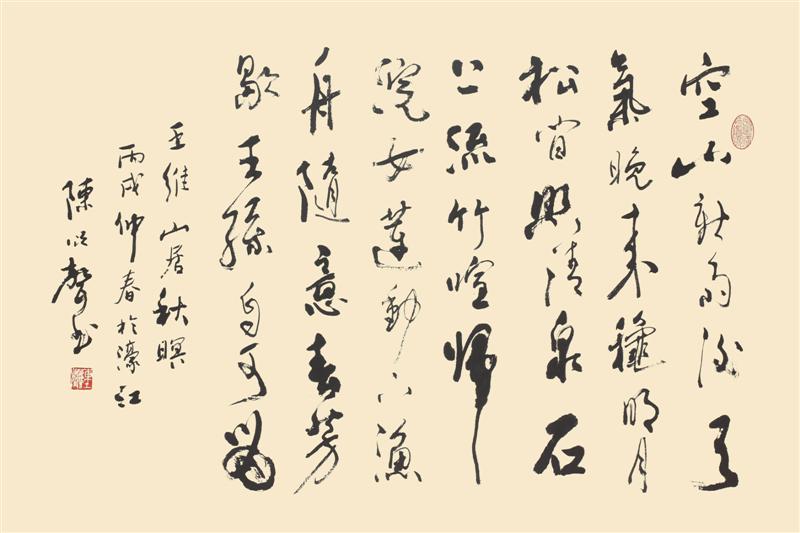 空山新雨後天
氣晚來秋明月
松間照清泉石
上流竹喧歸
浣女蓮動下漁
舟隨意春芳
歇王孫自可留
王維山居秋暝
丙戌仲春於濠江
陳 聲書